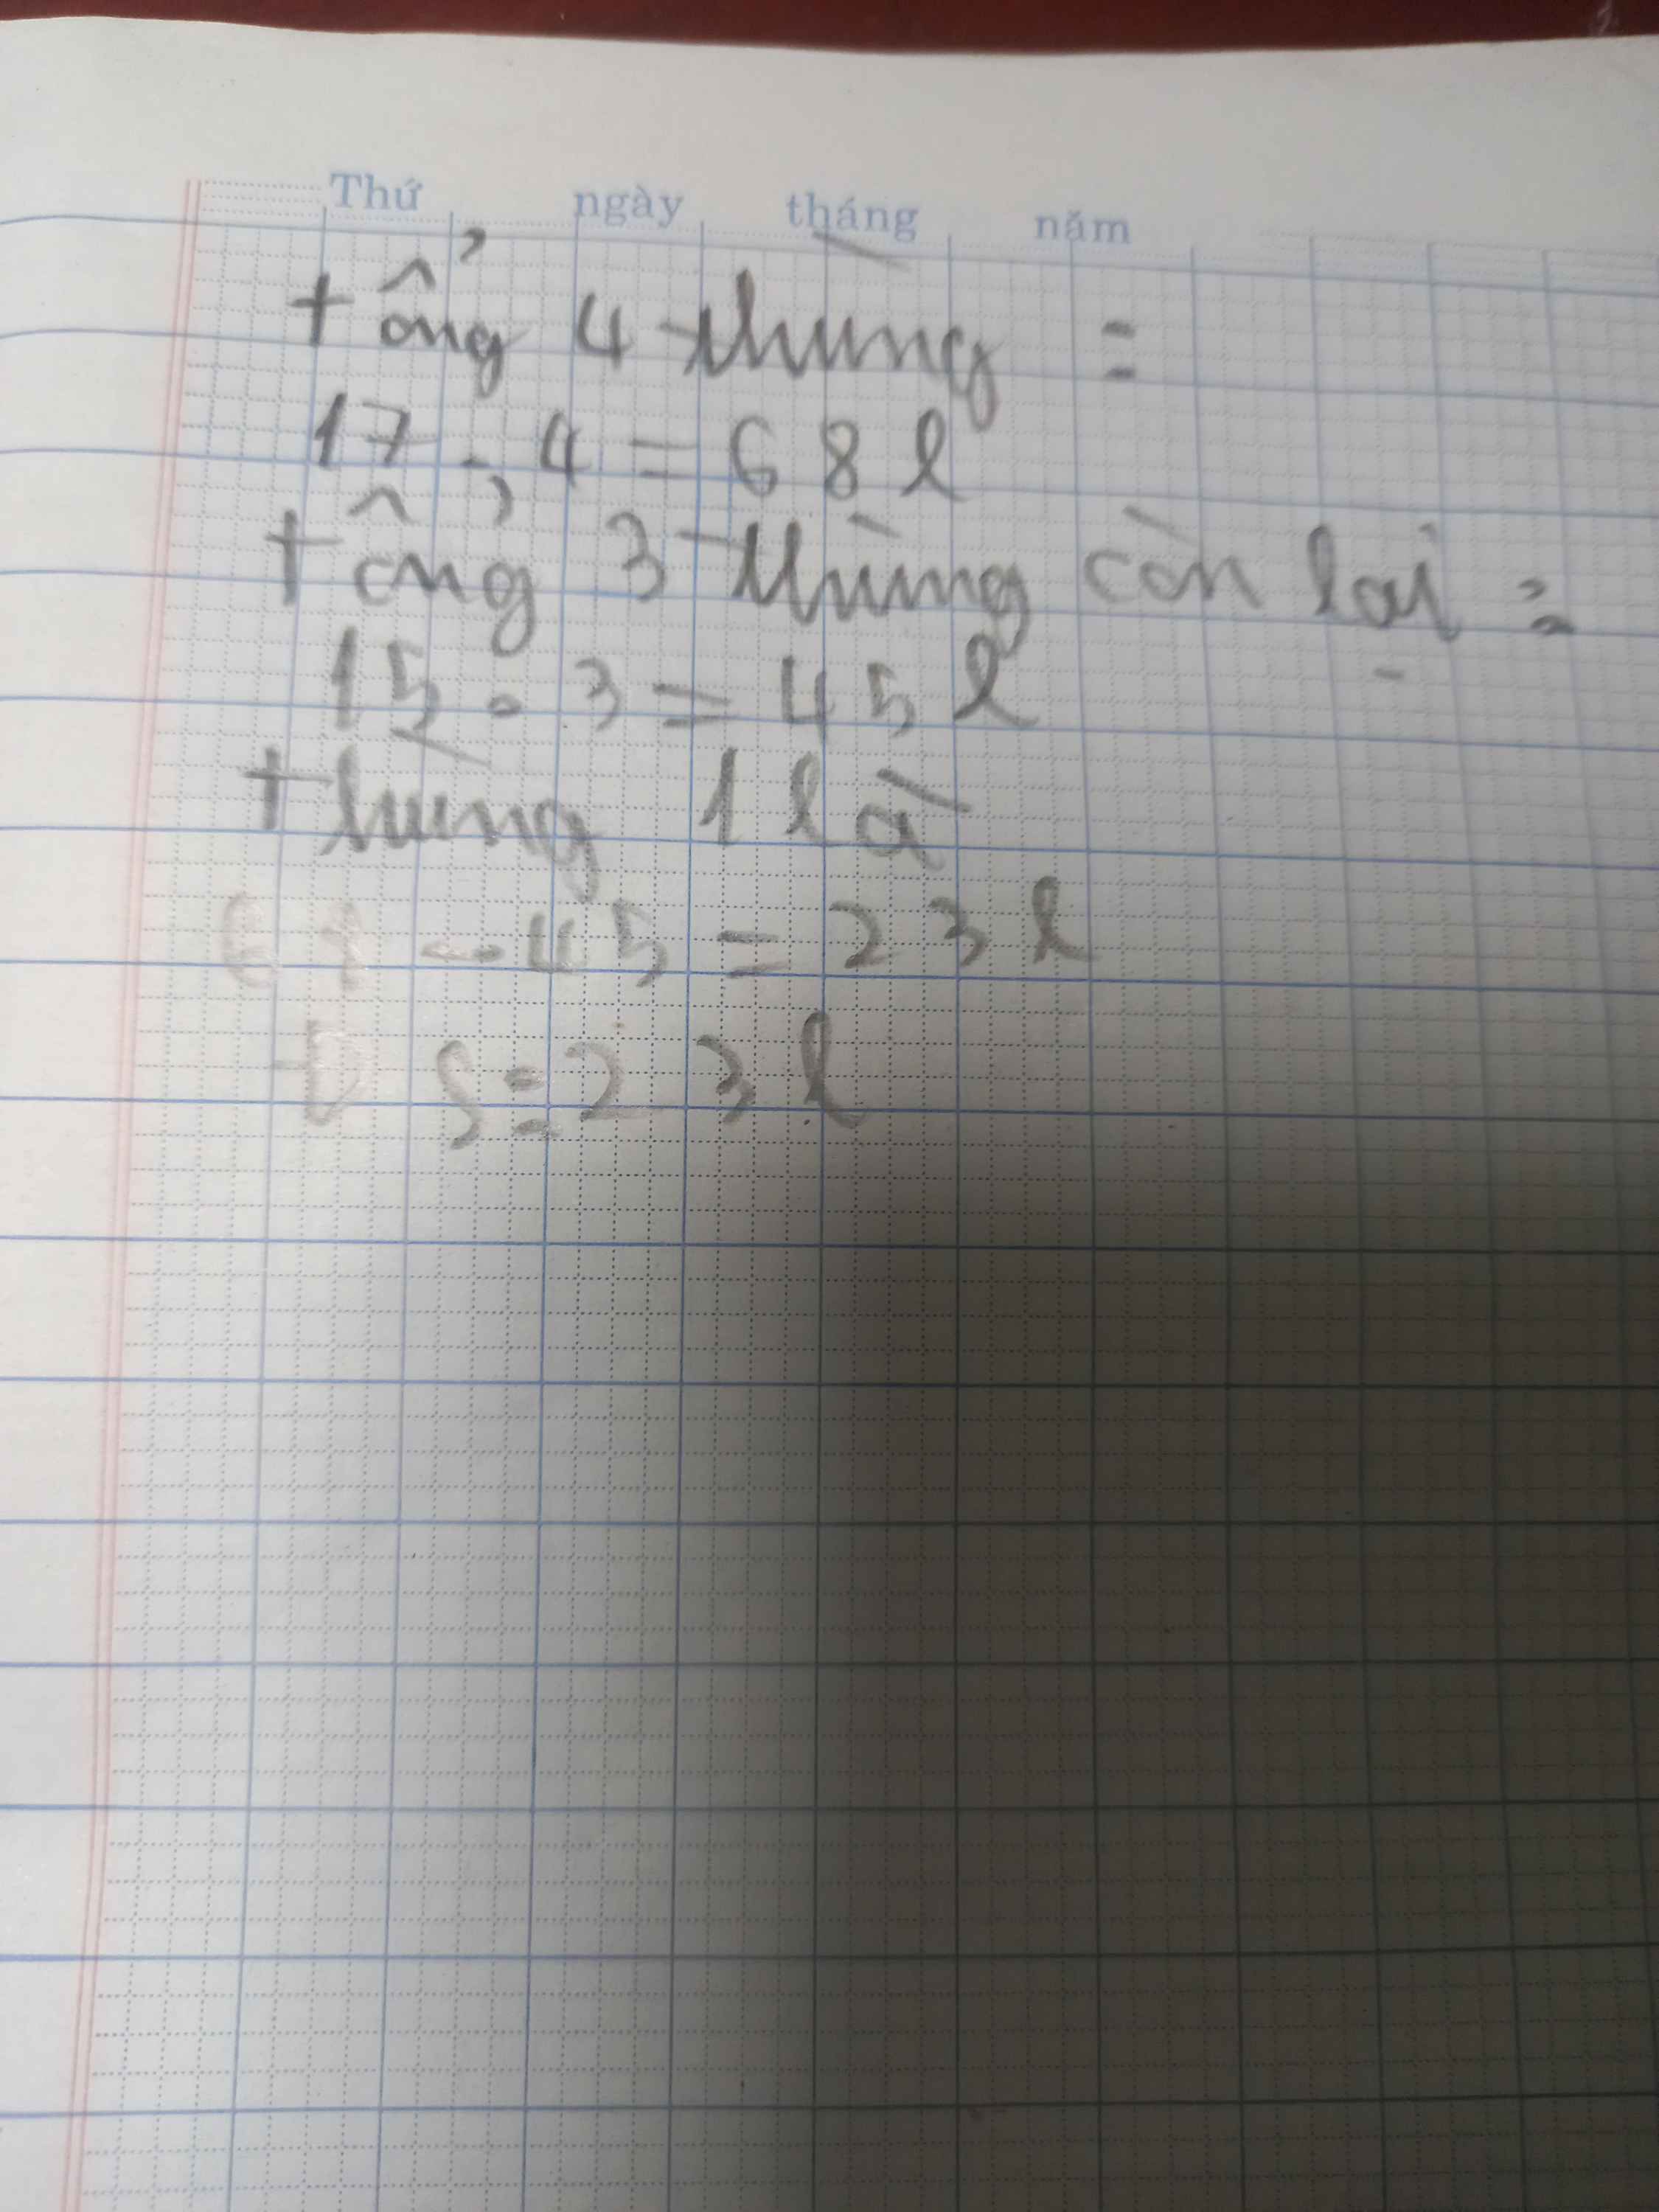 Thứ ngày tháng năm
tổng 4 thùng :
17 . 4 = 68 l
tổng 3 thùng còn lại :
15 . 3 = 45 l
thùng 1 là
68 - 45 = 23 l
Đ S : 23 l